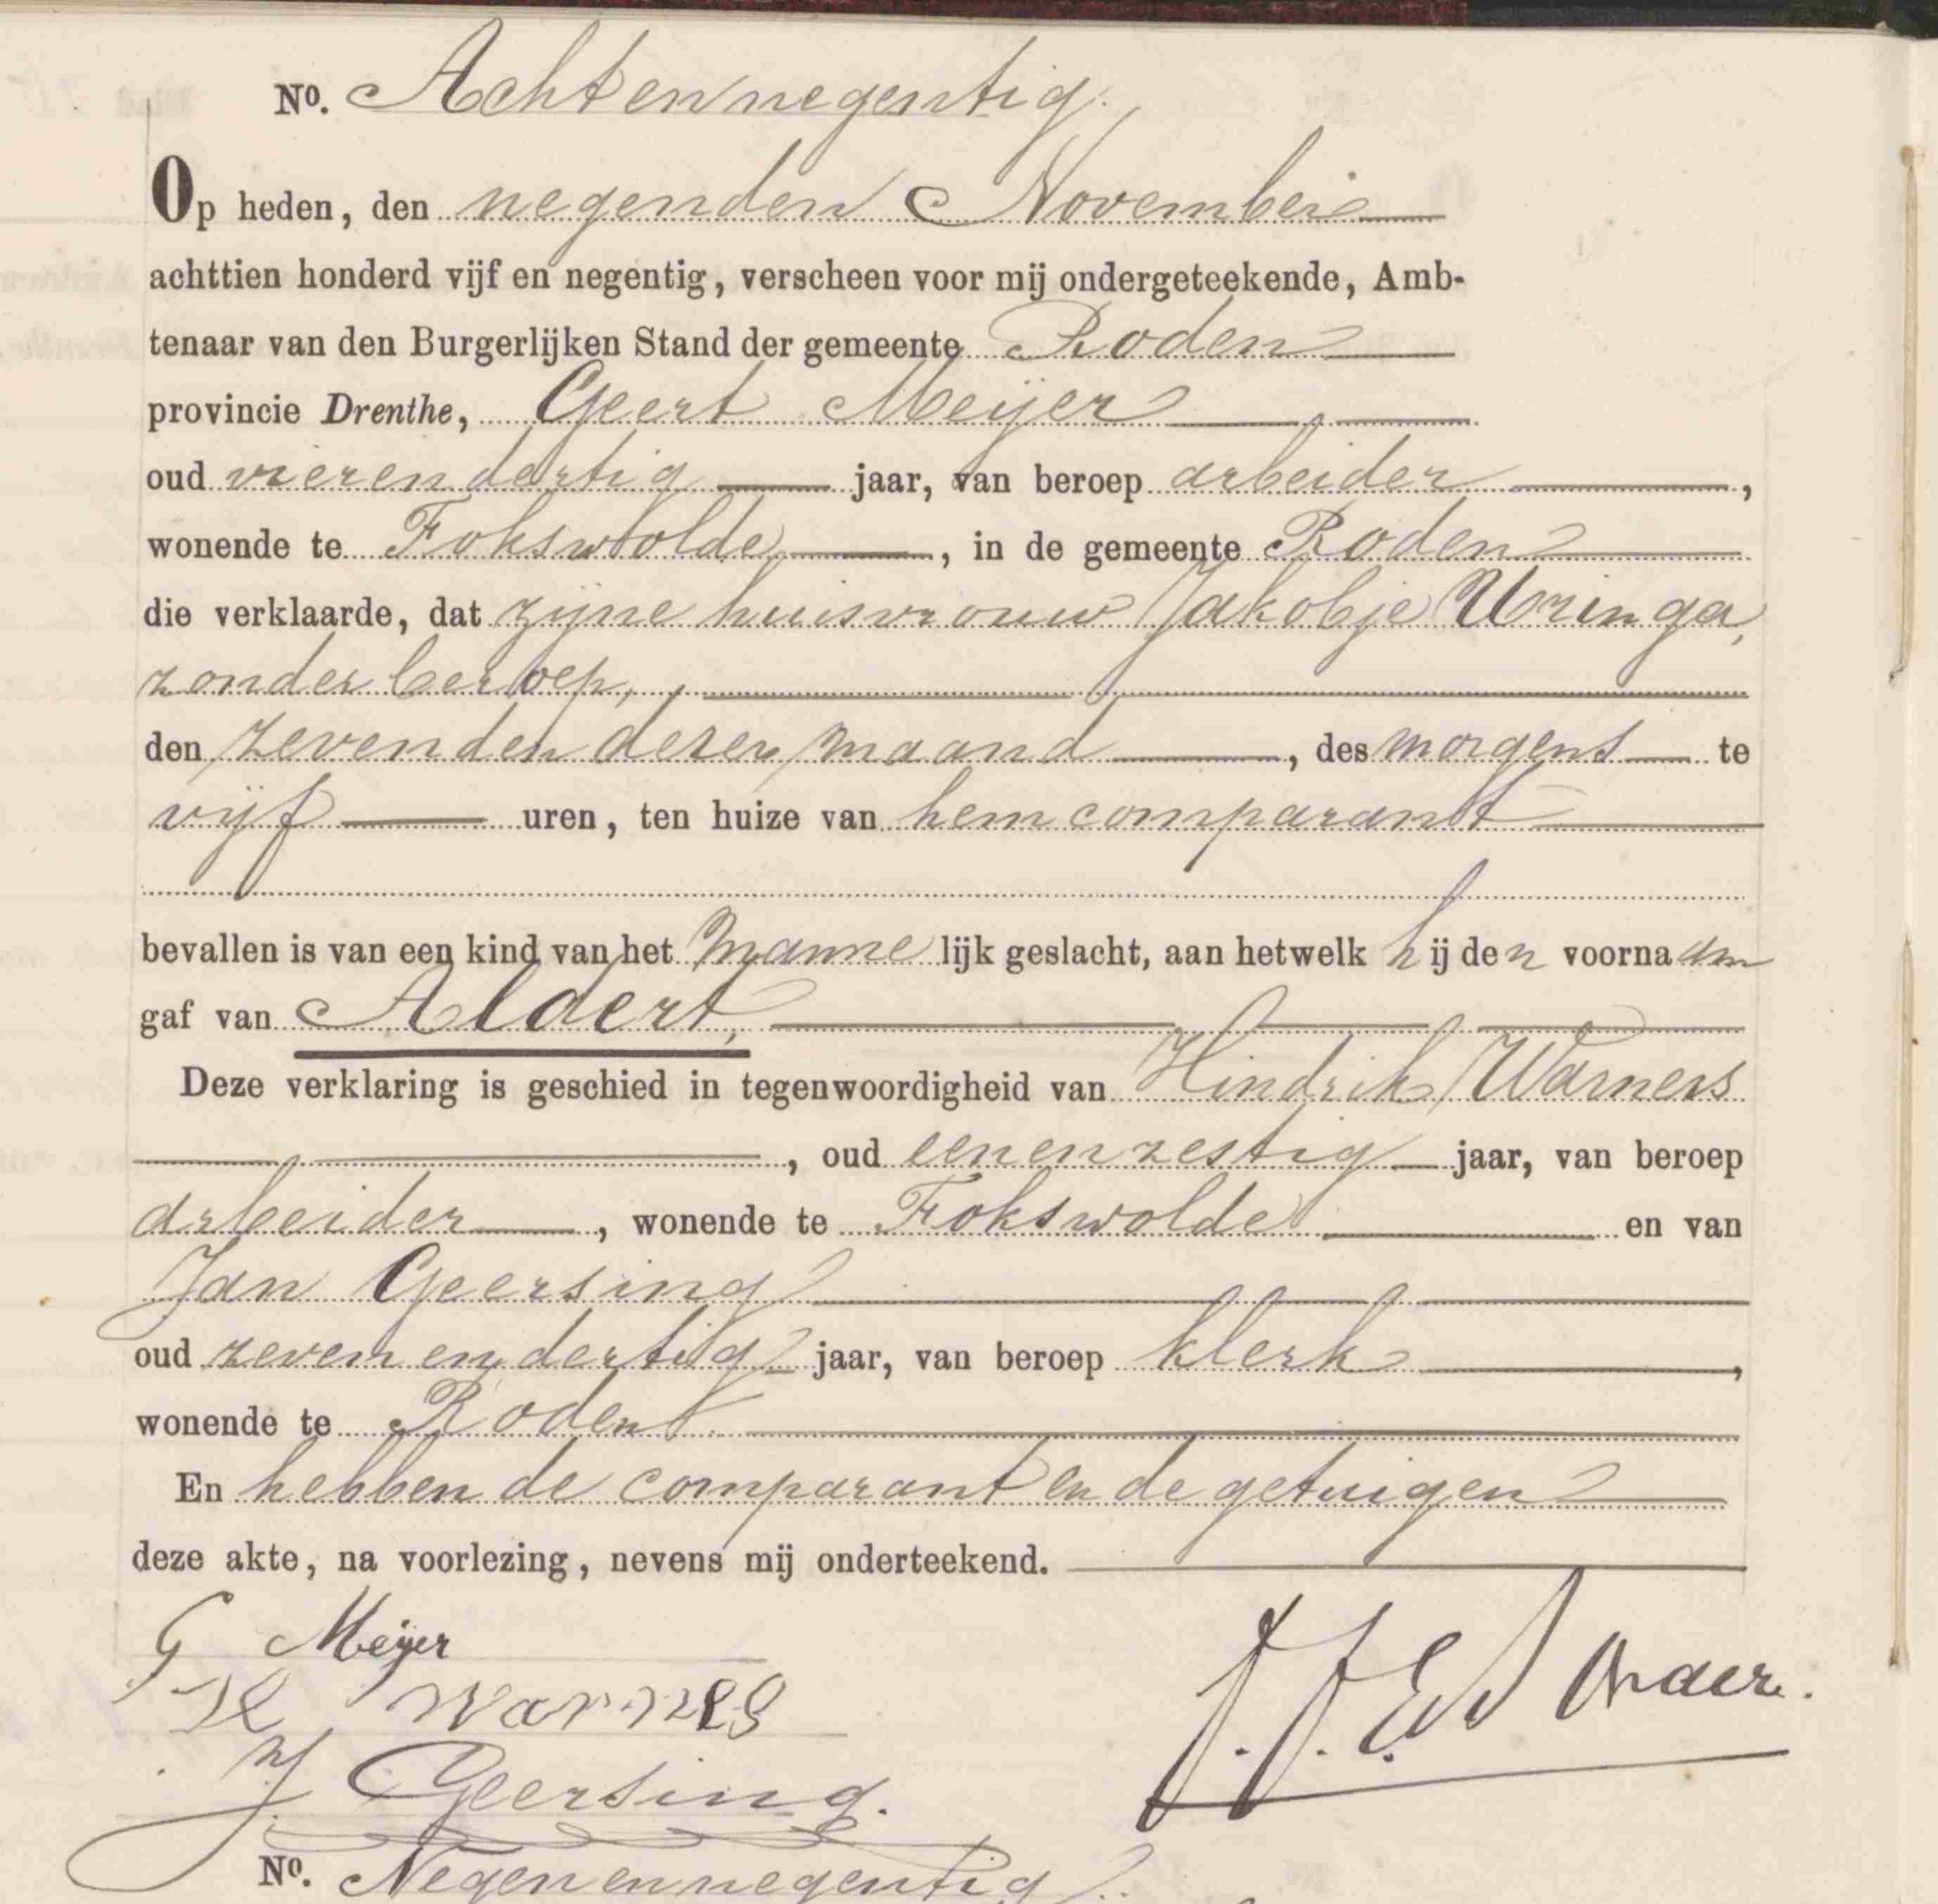 No. Achtennegentig.
Op heden, den negenden November
achttien honderd vijf en negentig, verscheen voor mij ondergeteekende, Amb-
tenaar van den Burgerlijken Stand der gemeente Roden
provincie Drenthe, Geert Meijer
oud vierendertig jaar, van beroep arbeider,
wonende te Fokswolde, in de gemeente Roden
die verklaarde, dat zijne huisvrouw Jakobje Uringa,
zonder beroep,
den zevenden dezer maand, des morgens te
vijf uren, ten huize van hem comparant
bevallen is van een kind van het mannelijk geslacht, aan hetwelk hij den voornaam
gaf van Aldert,
Deze verklaring is geschied in tegenwoordigheid van Hindrik Warners
, oud eenenzestig jaar, van beroep
arbeider, wonende te Fokswolde en van
Jan Geersing
oud zevenendertig jaar, van beroep klerk,
wonende te Roden
En hebben de comparant en de getuigen
deze akte, na voorlezing, nevens mij onderteekend.
G Meijer
H Warners
J Geersing.
No. Negenennegentig.